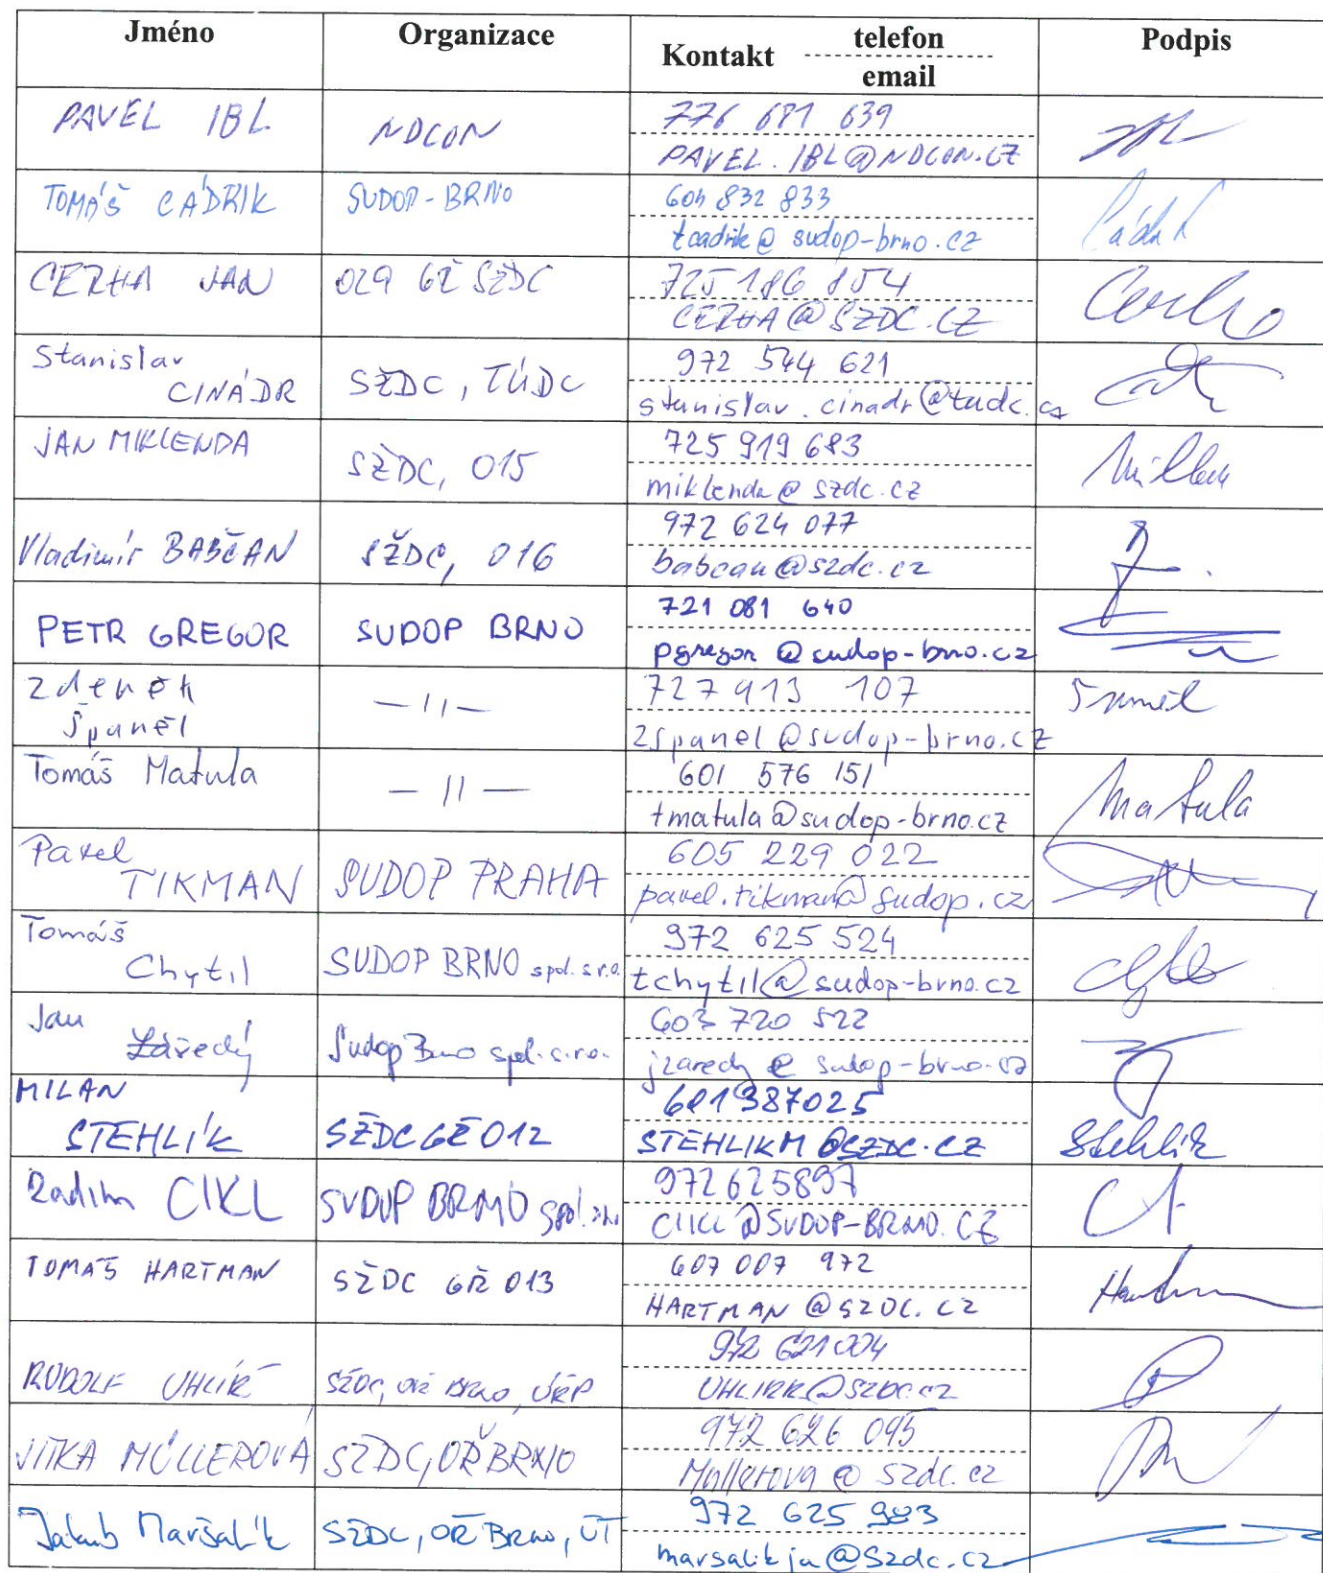 Jméno Organizace Kontakt telefon email Podpis
PAVEL IBL NDCON 776 681 639
PAVEL.IBL@NDCON.CZ
TOMÁŠ CÁDRIK SUDOP-BRNO 604 832 833
tcadrik@sudop-brno.cz
CERHA JAN O29 GŘ SŽDC 725 186 854
CERHA@SZDC.CZ
Stanislav CINÁDR SŽDC, TÚDC 972 544 621
stanislav.cinadr@tudc.cz
JAN MIKLENDA SŽDC, O15 725 919 683
miklenda@szdc.cz
Vladimír BABČAN SŽDC, O16 972 624 077
babcan@szdc.cz
PETR GREGOR SUDOP BRNO 721 081 640
pgregor@sudop-brno.cz
Zdeněk Španěl —11— 727 913 107
zspanel@sudop-brno.cz
Tomáš Matula —11— 601 576 151
tmatula@sudop-brno.cz Matula
Pavel TIKMAN SUDOP PRAHA 605 229 022
pavel.tikman@sudop.cz
Tomáš Chytil SUDOP BRNO spol. s r.o. 972 625 524
tchytil@sudop-brno.cz
Jan Zářecký Sudop Brno spol. s.r.o. 603 720 522
@sudop-brno.cz
MILAN STEHLÍK SŽDC GŘ O12 601387025
STEHLIKM@SZDC.CZ Stehlík
Radim CIKL SUDOP BRNO spol. s r.o. 972625897
CIKL@SUDOP-BRNO.CZ
TOMÁŠ HARTMAN SŽDC GŘ O13 607 007 972
HARTMAN@SZDC.CZ
RUDOLF UHLÍŘ SŽDC, OŘ BRNO, 972 621004
UHLIRR@SZDC.CZ
JITKA MÜLLEROVÁ SŽDC, OŘ BRNO 972 626 095
Mullerova@szdc.cz
Jakub Maršalík SŽDC, OŘ Brno, ÚT 972 625 983
marsalikja@Szdc.cz